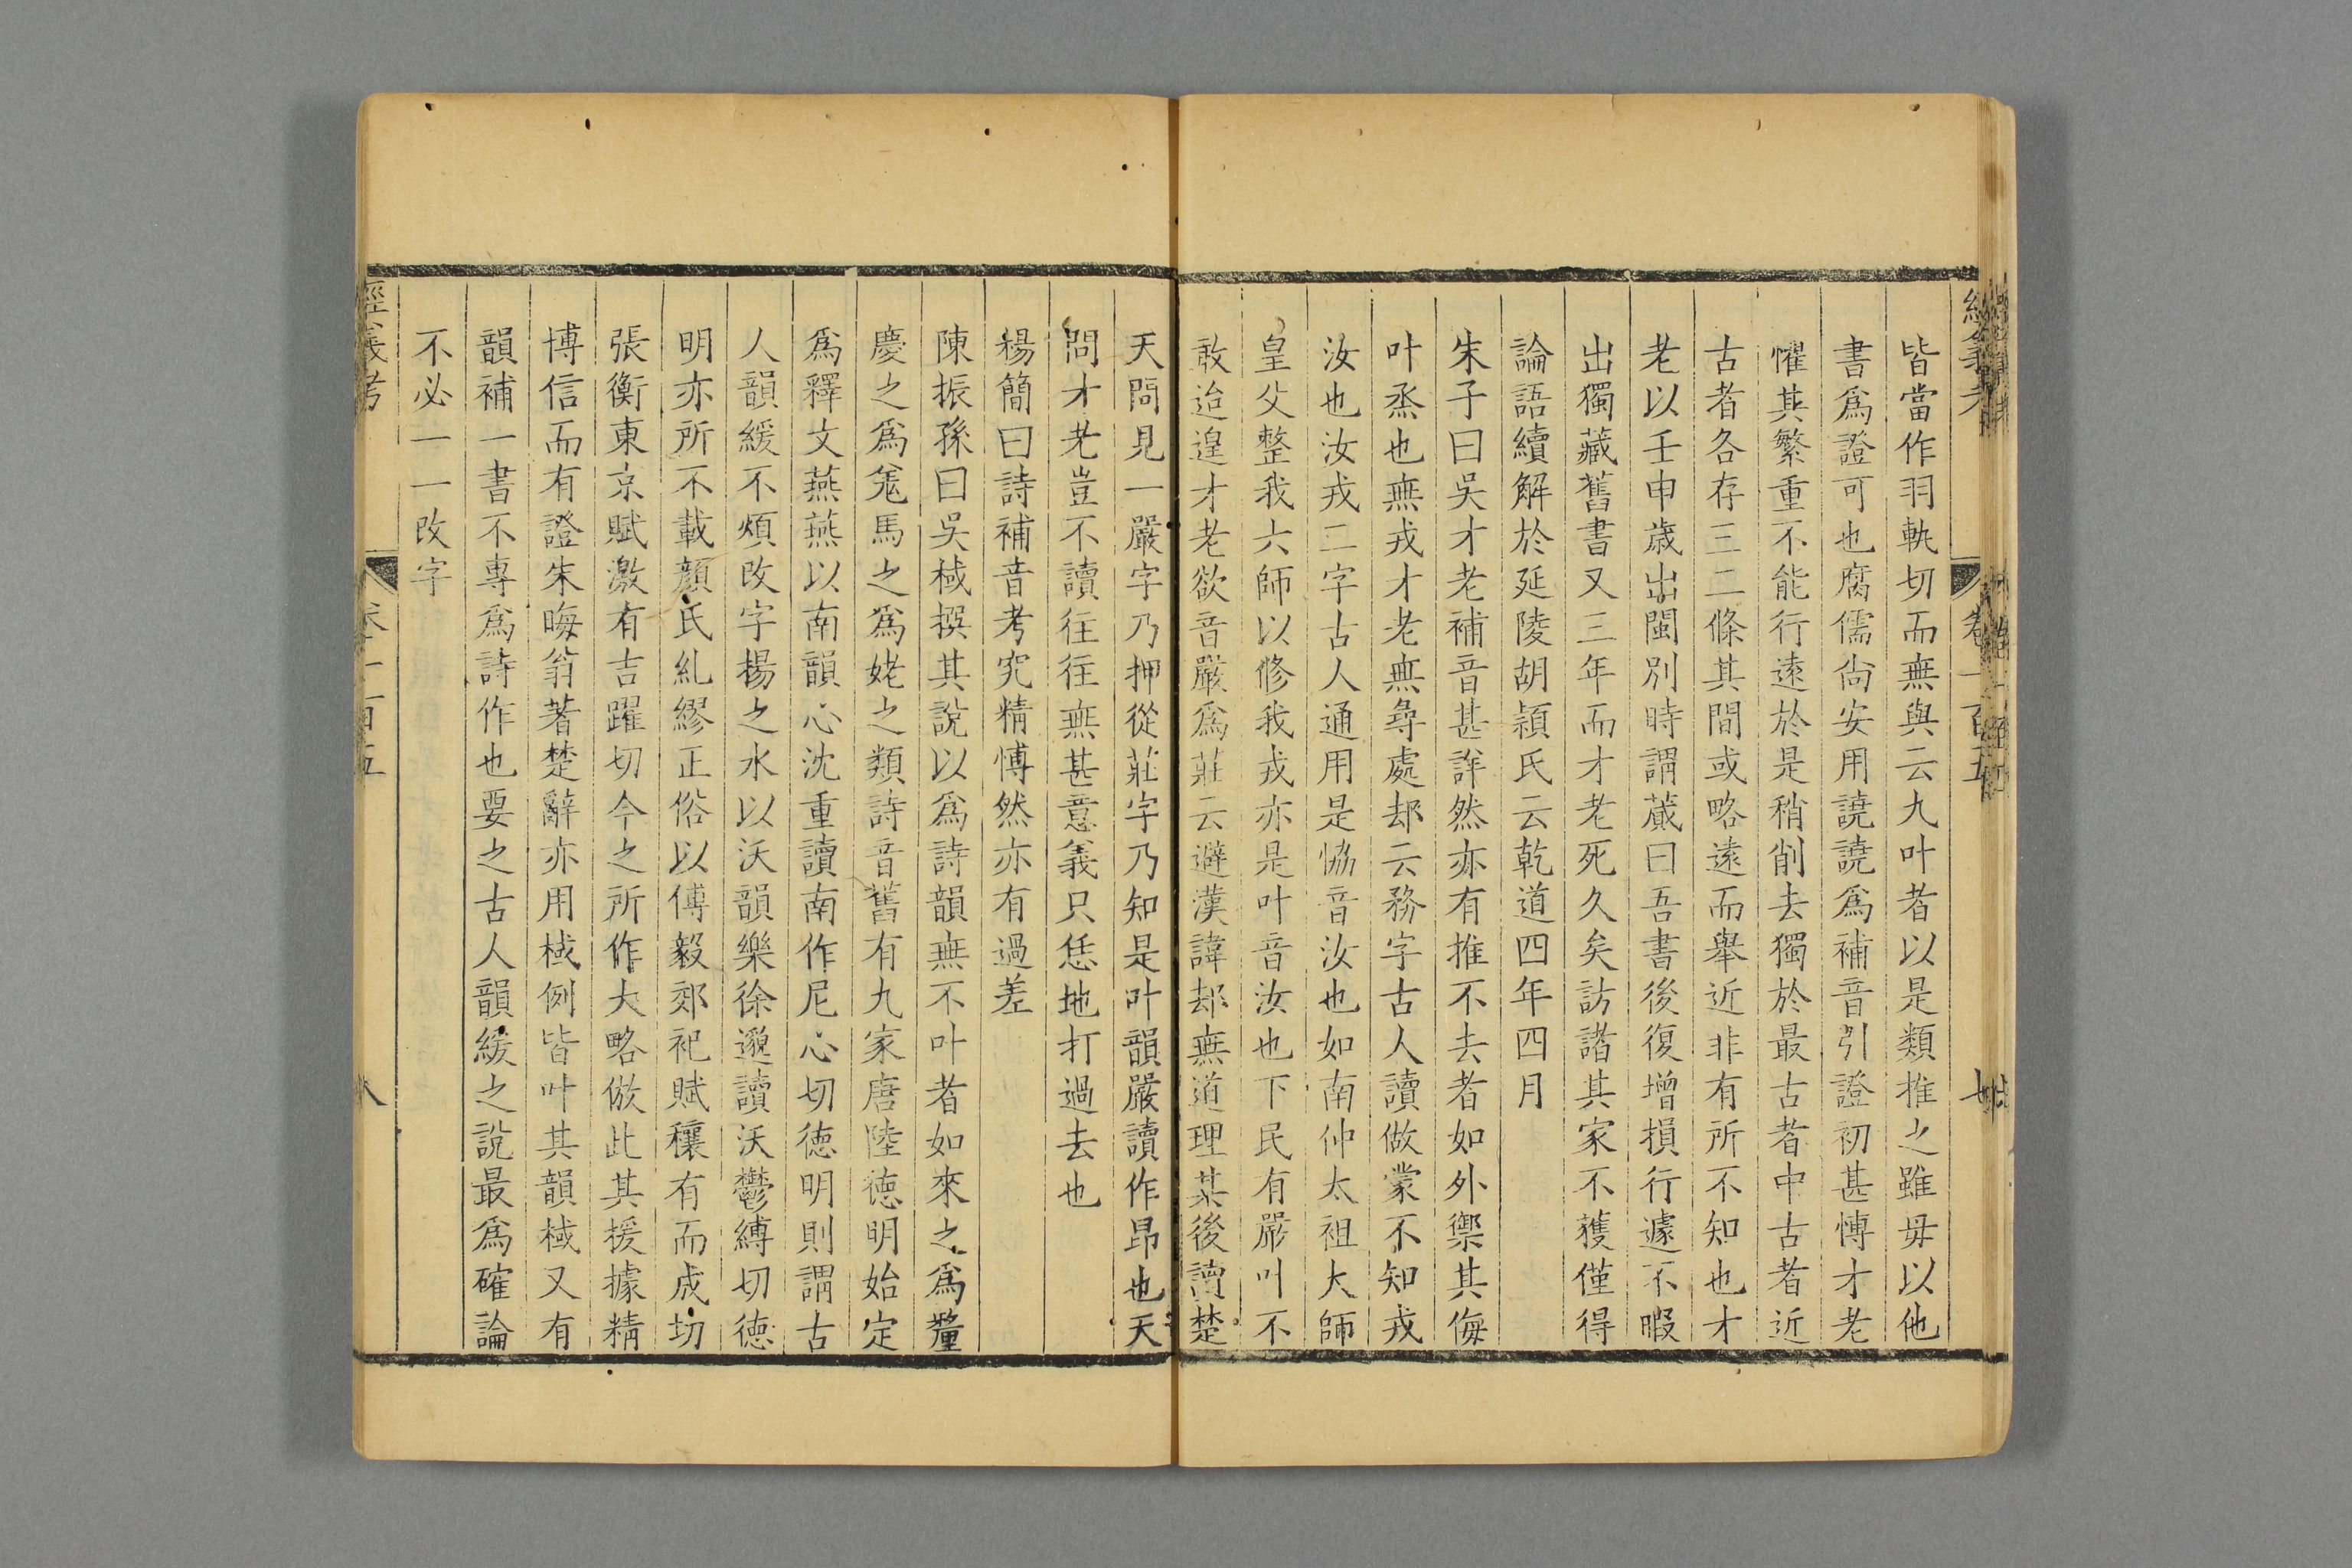 皆當作羽軌切而無與云九叶者以是類推之雖毋以他
書爲證可也腐儒尚安用譊譊爲補音引證初甚愽才老
懼其繁重不能行遠於是稍削去獨於最古者中古者近
古者各存三二條其間或略遠而舉近非有所不知也才
老以壬申歲出閩別時謂蕆曰吾書後復增損行遽不暇
出獨藏舊書又三年而才老死久矣訪諸其家不獲僅得
論語續解於延陵胡頴氏云乾道四年四月
朱子曰吳才老補音甚詳然亦有推不去者如外禦其侮
叶烝也無戎才老無尋處却云務字古人讀做蒙不知戎
汝也汝戎二字古人通用是恊音汝也如南仲太祖大師
皇父整我六師以修我戎亦是叶音汝也下民有嚴叶不
敢迨遑才老欲音嚴爲莊云避漢諱却無道理某後讀楚
天問見一嚴字乃押從莊字乃知是叶韻嚴讀作昂也天
問才老豈不讀往往無甚意義只恁地打過去也
楊簡曰詩補音考究精愽然亦有過差
陳振孫曰吳棫撰其說以爲詩韻無不叶者如來之爲釐
慶之爲羌馬之爲姥之類詩音舊有九家唐陸德明始定
爲釋文燕燕以南韻心沈重讀南作尼心切德明則謂古
人韻緩不煩改字揚之水以沃韻樂徐邈讀沃鬱縛切德
明亦所不載顏氏糺繆正俗以傅毅郊祀賦穰有而成切
張衡東京賦激有吉躍切今之所作大略倣此其援據精
博信而有證朱晦翁著楚辭亦用棫例皆叶其韻棫又有
韻補一書不專爲詩作也要之古人韻緩之說最爲確論
不必一一改字
經義考
卷一百五
八